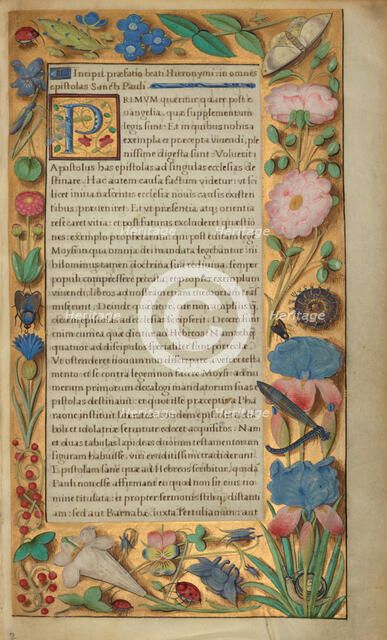 Incipit præfatio beati Hieronymi: in omnes
epistolas Sancti Pauli.
PRIMVM quęritur; quare post e-
uangelia, quæ supplementum
legis sunt: Et in quibus nobis
exempla et præcepta viuendi, ple-
nissime digesta sunt: Voluerit
Apostolus has epistolas ad singulas ecclesias de-
stinare. Hac autem causa factum videtur: vt
licet initia nascentis ecclesiæ nouis causis existen-
tibus præueniret. Et vt præsentia, atque orientia
resecaret vitia: et post futuras excluderet quæstio-
nes: exemplo prophetarum: qui post editam legem
Moysi: omnia dei mandata legebantur:
hilominus tamen doctrina sua rediuiua, semper
populi compressere peccata: et propter exemplum
viuendi, libris ad nostram etiam memoriam
miserunt. Deinde cur non amplius
epistolas ad ecclesias scripserit. Decem sunt
enim cum ea quæ dicitur ad Hebreos: Nam
quatuor ad discipulos specialiter sunt
Vt ostenderet nouum non discrepare a veteri testa-
mento: et se contra legem non facere Moysi: ad nu-
merum primorum decalogi mandatorum suas e-
pistolas destinauit: et quot ille præceptis a Pha-
raone instituit totidem epistolis a dia-
boli et idolatriæ seruitute edocet acquisitos: Nam
et duas tabulas lapideas duorum testamentorum
figuram habuisse, viri eruditissimi tradiderunt.
Epistolam sane quæ ad Hebreos scribitur, quidam
Pauli non esse affirmant: eo quod non sit eius no-
mine titulata: et propter sermonis stilique distanti-
am: sed aut Barnabæ iuxta Tertulianum: aut
Heritage Images